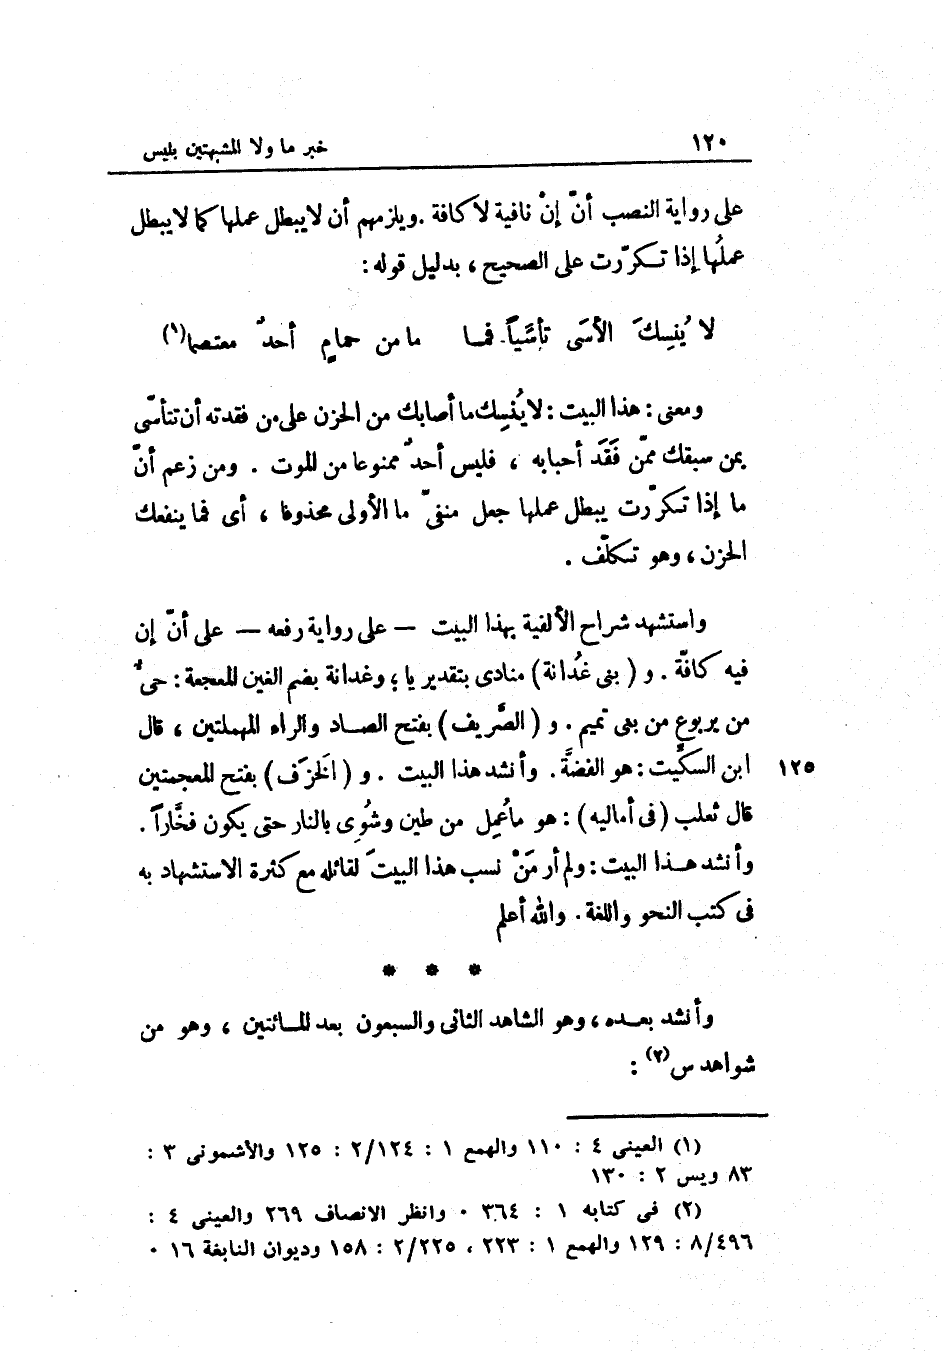 ١٢٠ خبر ما ولا المشبهتين بليس
على رواية النصب أنّ إنْ نافية لاَ كافة . ويلزمهم أن لا يبطل عملها كما لا يبطل
عملُها إذا تكرّرت على الصحيح ، بدليل قوله :
لا يُنسِكَ الأسَى تأسِّياً فما ما من حمامٍ أحدٌ معتصما(١)
ومعنى : هذا البيت : لا يُنْسِك ما أصابك من الحزن على من فقدته أن تتأسّى
بمن سبقك ممّن فَقَد أحبابه ، فليس أحدٌ ممنوعا من الموت . ومن زعم أنّ
ما إذا تكرّرت يبطل عملها جعل منفىّ ما الأولى محذوفا ، أى فما ينفعك
الحزن ، وهو تكلّف .
واستشهد شراح الألفية بهذا البيت — على رواية رفعه — على أنّ إن
فيه كافّة . و ( بنى غُدانة ) منادى بتقدير يا ، وغدانة بضم الغين المعجمة : حىٌّ
من يربوع من بنى تميم . و ( الصَّريف ) بفتح الصاد والراء المهملتين ، قال
ابن السكِّيت : هو الفضَّة . وأنشد هذا البيت . و ( الخزَف ) بفتح المعجمتين ١٢٥
قال ثعلب ( فى أماليه ) : هو ما عُمِل من طين وشُوِى بالنار حتى يكون فخَّاراً .
وأنشد هذا البيت : ولم أر مَنْ نسب هذا البيتَ لقائله مع كثرة الاستشهاد به
فى كتب النحو واللغة . والله أعلم
* * *
وأنشد بعده ، وهو الشاهد الثانى والسبعون بعد المائتين ، وهو من
شواهد س(٢) :
(١) العينى ٤ : ١١٠ والهمع ١ : ١٢٤/٢ : ١٢٥ والأشمونى ٣ :
٨٣ ويس ٢ : ١٣٠
(٢) فى كتابه ١ : ٣٦٤ . وانظر الانصاف ٢٦٩ والعينى ٤ :
٨/٤٩٦ : ١٢٩ والهمع ١ : ٢٢٣ ، ٢/٢٢٥ : ١٥٨ وديوان النابغة ١٦ .